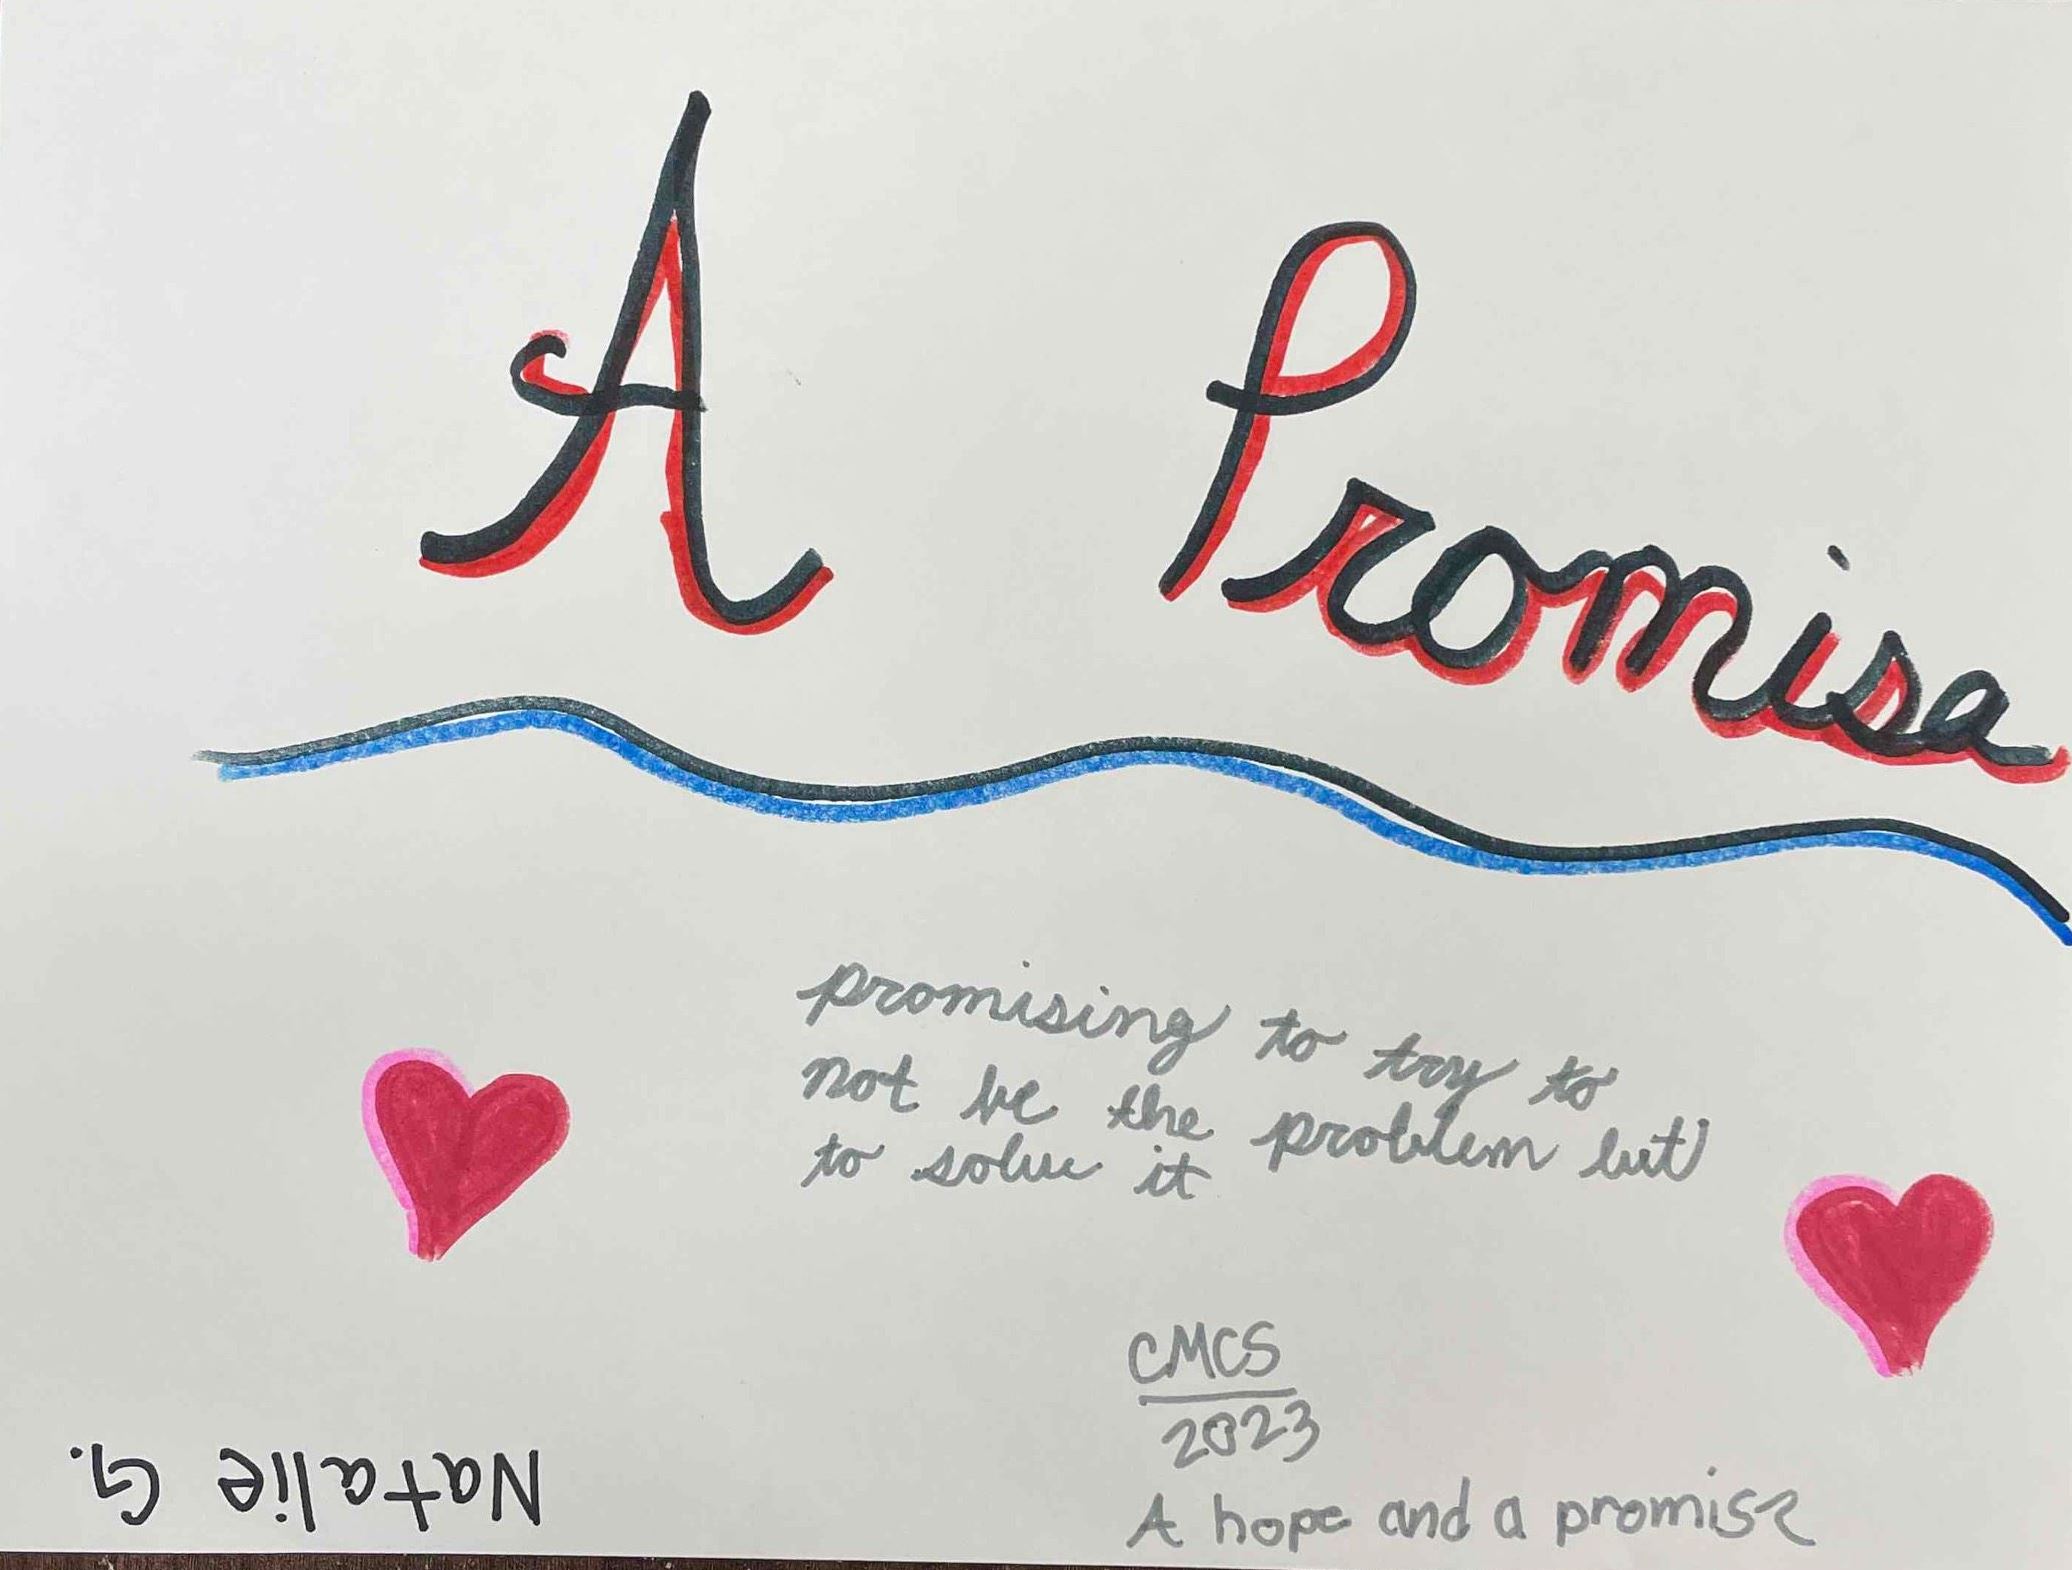 A Promise
promising to try to
not be the problem but
to solve it
CMCS
2023
A hope and a promise
Natalie G.